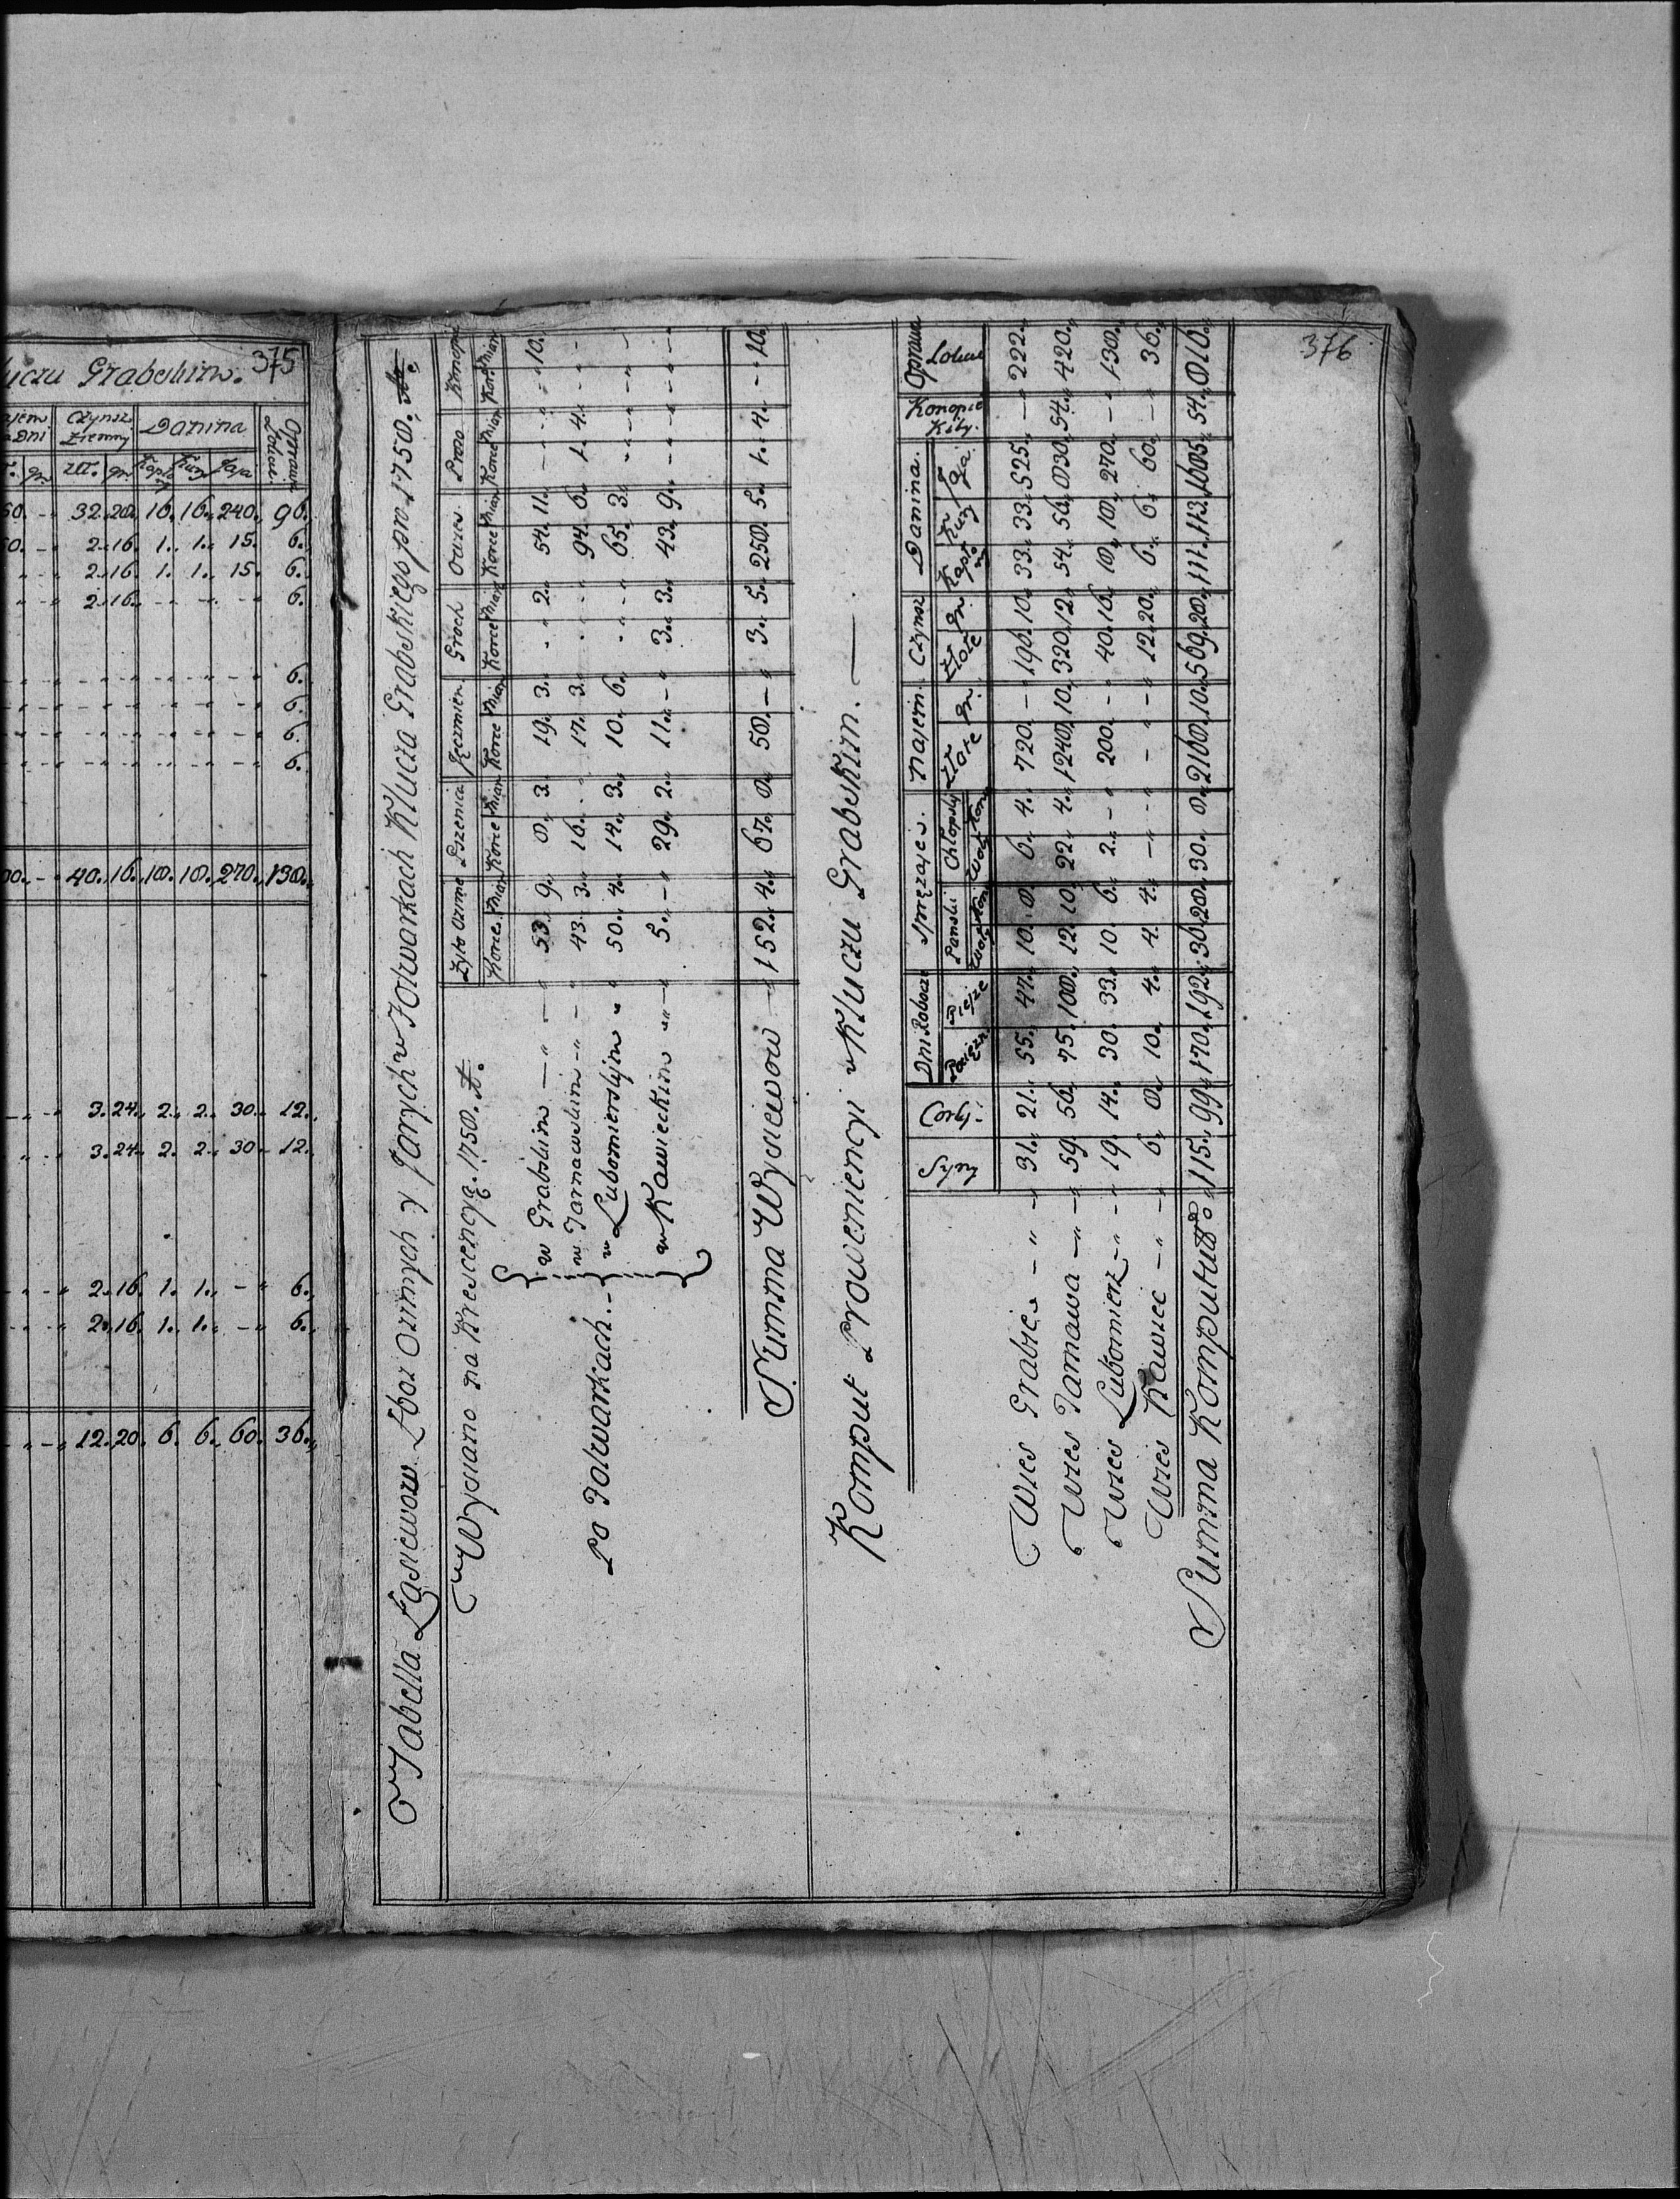 uczu Grabskim. 375
Czynsz Ziemny Danina Oprawa
złł. gr. Kapł. Kury Jaja
60. - 32. 20. 16. 16. 240. 96.
50. - 2. 16. 1. 1. 15. 6.
2. 16. 1. 1. 15. 6.
2. 16. - - - 6.
- - - - - 6.
- - - - - 6.
- - - - - 6.
- - - - - 6.
00. - 40. 16. 18. 18. 270. 130.
3. 24. 2. 2. 30. 12.
3. 24. 2. 2. 30. 12.
2. 16. 1. 1. - 6.
2. 16. 1. 1. - 6.
12. 20. 6. 6. 60. 36.
Tabella Zasiewow Zboz Ozimych y Jarych w Folwarkach Klucza Grabskiego pro 1750.
Wysiano na Krescencyą 1750. Żyto Ozime Pszenica Jęczmien Groch Owies Proso Konopie
Korce Miar Korce Miar Korce Miar Korce Miar Korce Miar Korce Miar Kor. Miar
w Grabskim - 53. 9. 8. 3. 19. 3. - 2. 54. 11. - - - 10.
w Tarnawskim - 43. 3. 16. - 17. 3. - - 94. 6. 1. 4. - -
Po Folwarkach.
w Lubomierskim 50. 4. 14. 3. 10. 6. - - 65. 3. - - - -
w Kawieckim 5. - 29. 2. 11. - 3. 3. 43. 9. - - - -
Summa Wysiewow - 152. 4. 67. 8. 58. - 3. 5. 258. 5. 1. 4. - 10.
Komput Proweniencyi w Kluczu Grabskim.
Synÿ Corki Dni Robocze Sprzęzaje Najem Czynsz Danina. Konopie Oprawa
Pańskí Chłopskí Złote Gr. Złote Gr. Kapł. Kury Jaja
Wies Grabie - 31. 21. 55. 47. 10. 8. 6. 4. 720. - 196. 10. 33. 33. 525. - 222.
Wies Tarnawa - 59. 56. 75. 108. 12. 10. 22. 4. 1240. 10. 320. 12. 54. 56. 830. 54. 420.
Wies Lubomierz - 19. 14. 30. 33. 10. 6. 2. - 200. - 40. 16. 18. 18. 270. - 130.
Wies Kawiec - 6. 8. 10. 4. 4. 4. - - - - 12. 20. 6. 6. 60. - 36.
Summa Komputu 115. 99. 170. 192. 36. 28. 30. 8. 2160. 10. 569. 28. 111. 113. 1685. 54. 818.
376